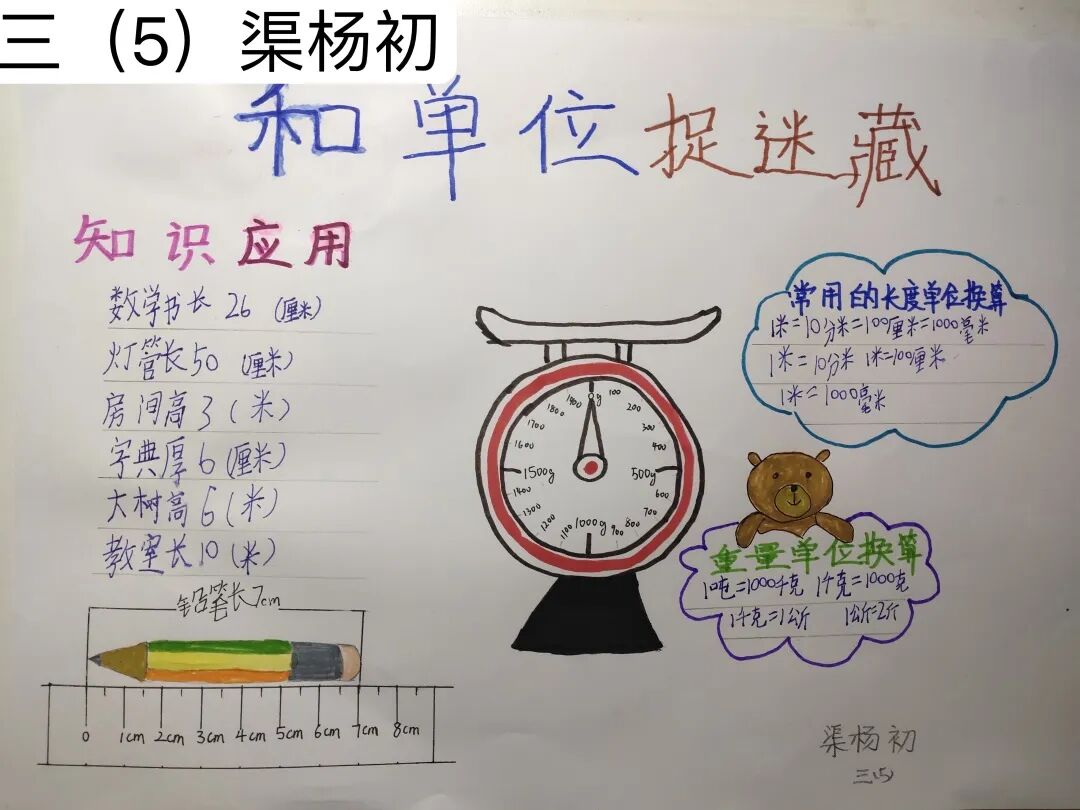 三（5）渠杨初
和单位捉迷藏
知识应用
数学书长 26 (厘米)
灯管长50 (厘米)
房间高3(米)
字典厚6(厘米)
大树高6(米)
教室长10(米)
铅笔长7cm
0 1cm 2cm 3cm 4cm 5cm 6cm 7cm 8cm
0g 100 200 300 400 500g 600 700 800 900 1000g 1100 1200 1300 1400 1500g 1600 1700 1800 1900
常用的长度单位换算
1米=10分米=100厘米=1000毫米
1米=10分米 1米=100厘米
1米=1000毫米
重量单位换算
1吨=1000千克 1千克=1000克
1千克=1公斤 1公斤=2斤
渠杨初
三(5)